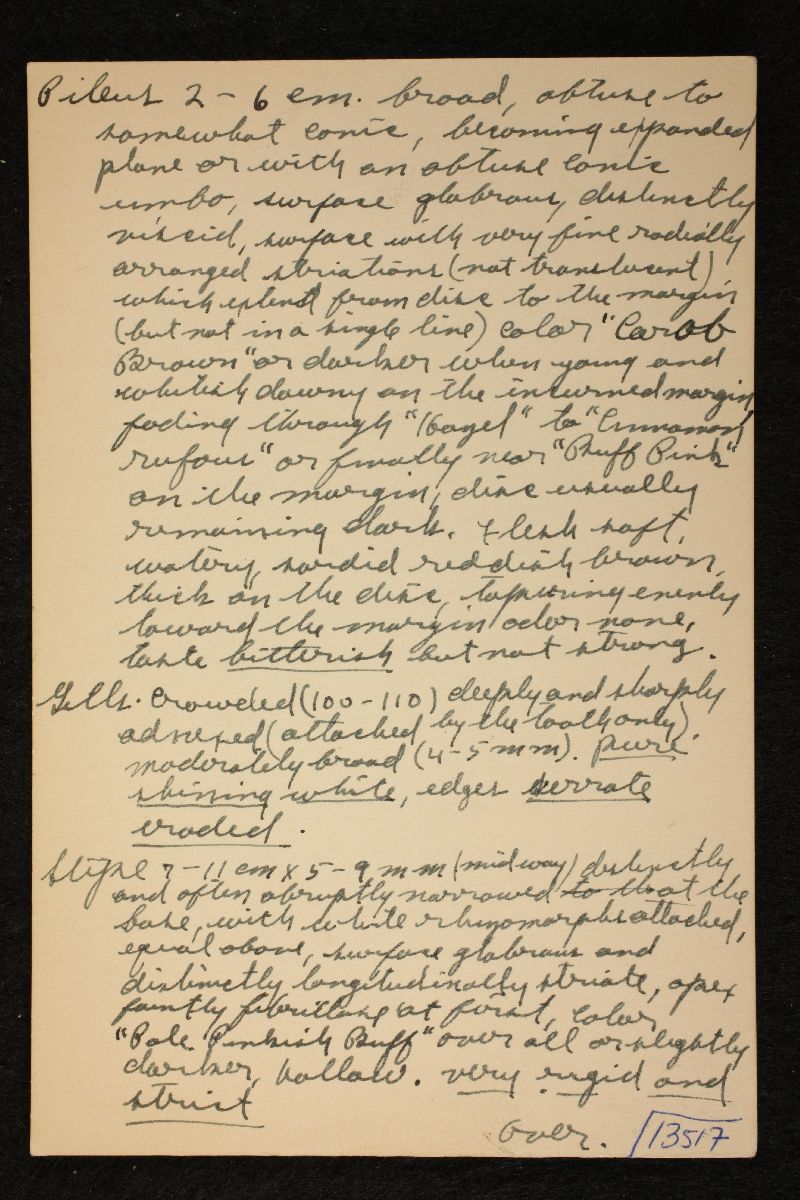 Pileus 2 - 6 cm. broad, obtuse to
somewhat conic, becoming expanded
plane or with an obtuse conic
umbo, surface glabrous, distinctly
viscid, surface with very fine radially
arranged striations (not translucent)
which extend from disc to the margin
(but not in a single line) color "Carob
Brown" or darker when young and
whitish downy on the incurved margin,
fading through "Kaiser" to "Cinnamon
rufous" or finally near "Buff Pink"
on the margin, disc usually
remaining dark. Flesh soft,
watery, sordid reddish brown,
thick on the disc, tapering evenly
toward the margin odor none,
taste bitterish but not strong.
Gills. crowded (100 - 110) deeply and sharply
adnexed (attached by the tooth only).
moderately broad (4 - 5 mm). pure
shining white, edges serrate
eroded.
Stipe 7 - 11 cm x 5 - 9 mm (midway) distinctly
and often abruptly narrowed to that the
base, with white rhizomorphs attached,
equal above, surface glabrous and
distinctly longitudinally striate, apex
faintly fibrillose at first, color
"Pale Pinkish Buff" over all or slightly
darker, hollow. very rigid and
strict
Over. 13517